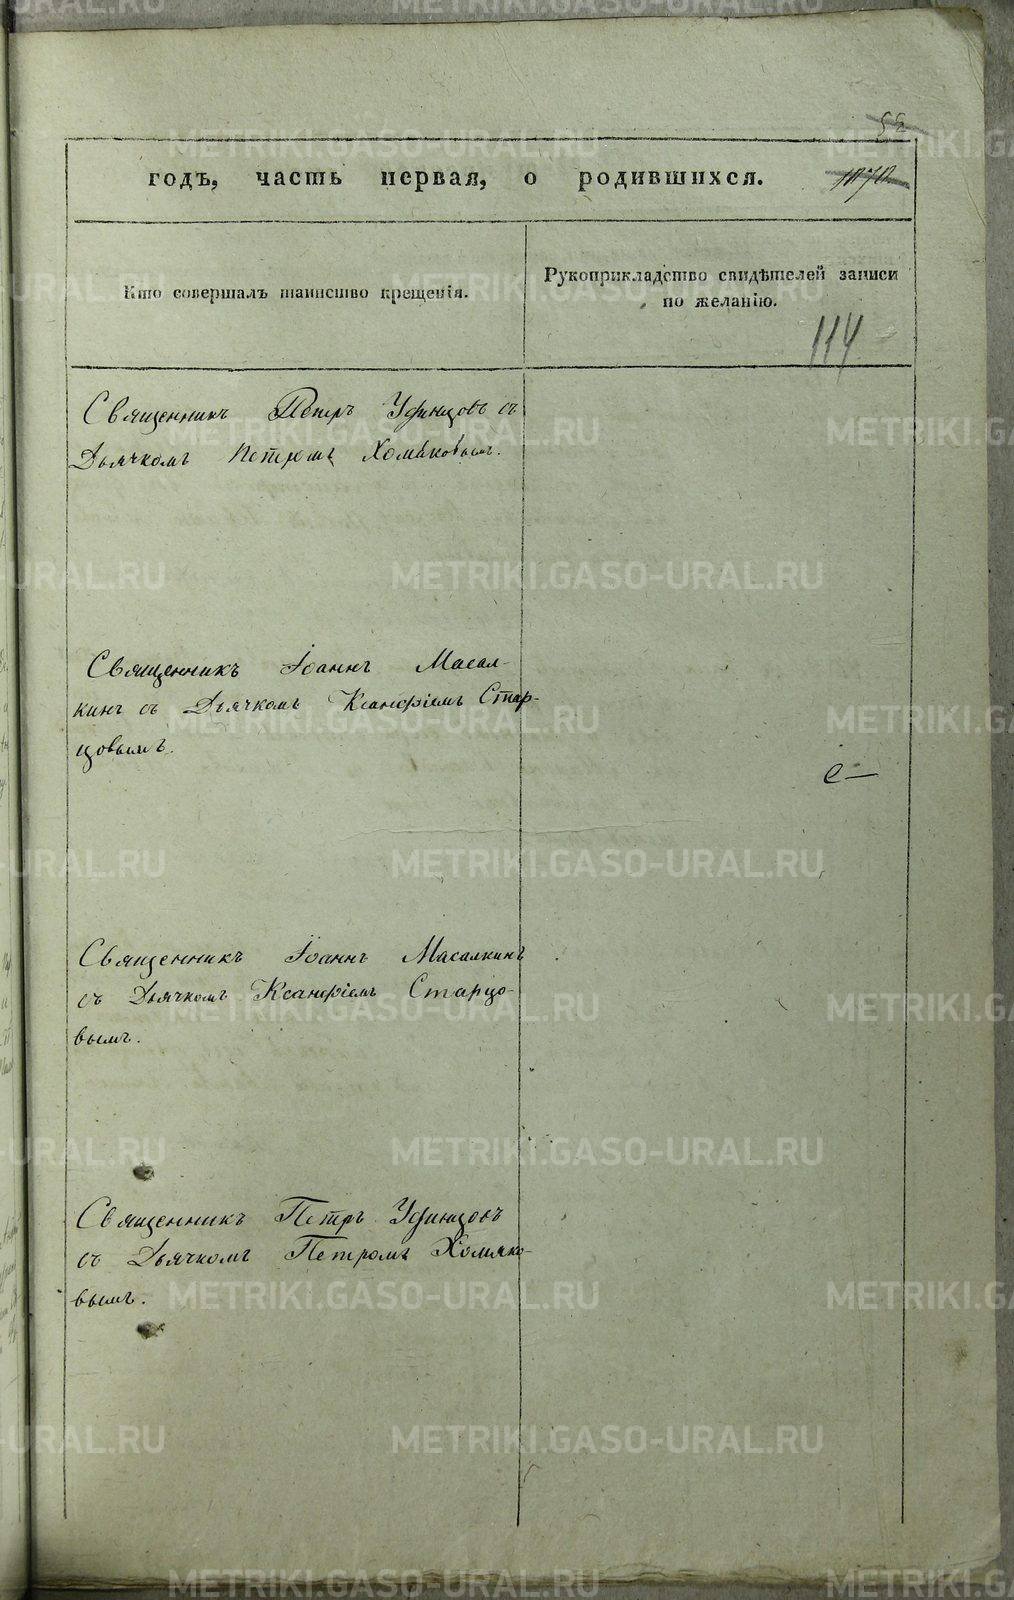 52
годъ, часть первая, о родившихся.
Кто совершалъ таинство крещенія.
Рукоприкладство свидѣтелей записи
по желанію.
114
Священникъ Петръ Уфинцовъ съ
Дьячкомъ Петромъ Хомяковымъ.
Священникъ Іоаннъ Масал-
кинъ съ Дьячкомъ Ксанфіемъ Стар-
цовымъ.
Священникъ Іоаннъ Масалкинъ
съ Дьячкомъ Ксанфіемъ Старцо-
вымъ.
Священникъ Петръ Уфинцовъ
съ Дьячкомъ Петромъ Хомяко-
вымъ.
METRIKI.GASO-URAL.RU